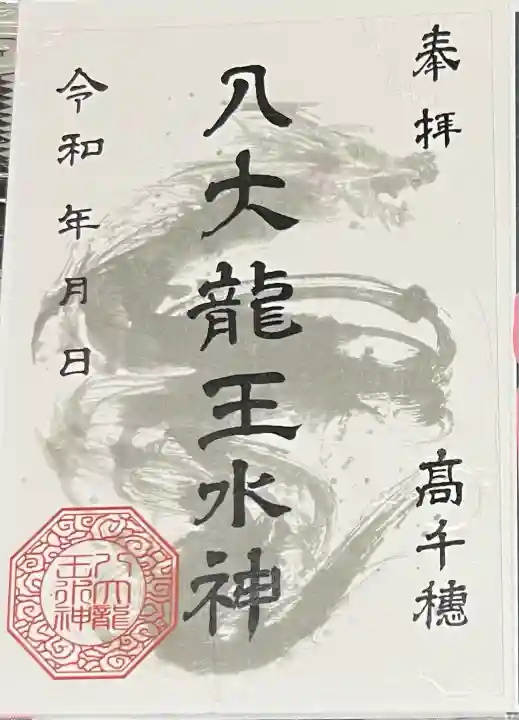 奉拝
高千穂
八大龍王水神
令和年月日
八大龍
王水神